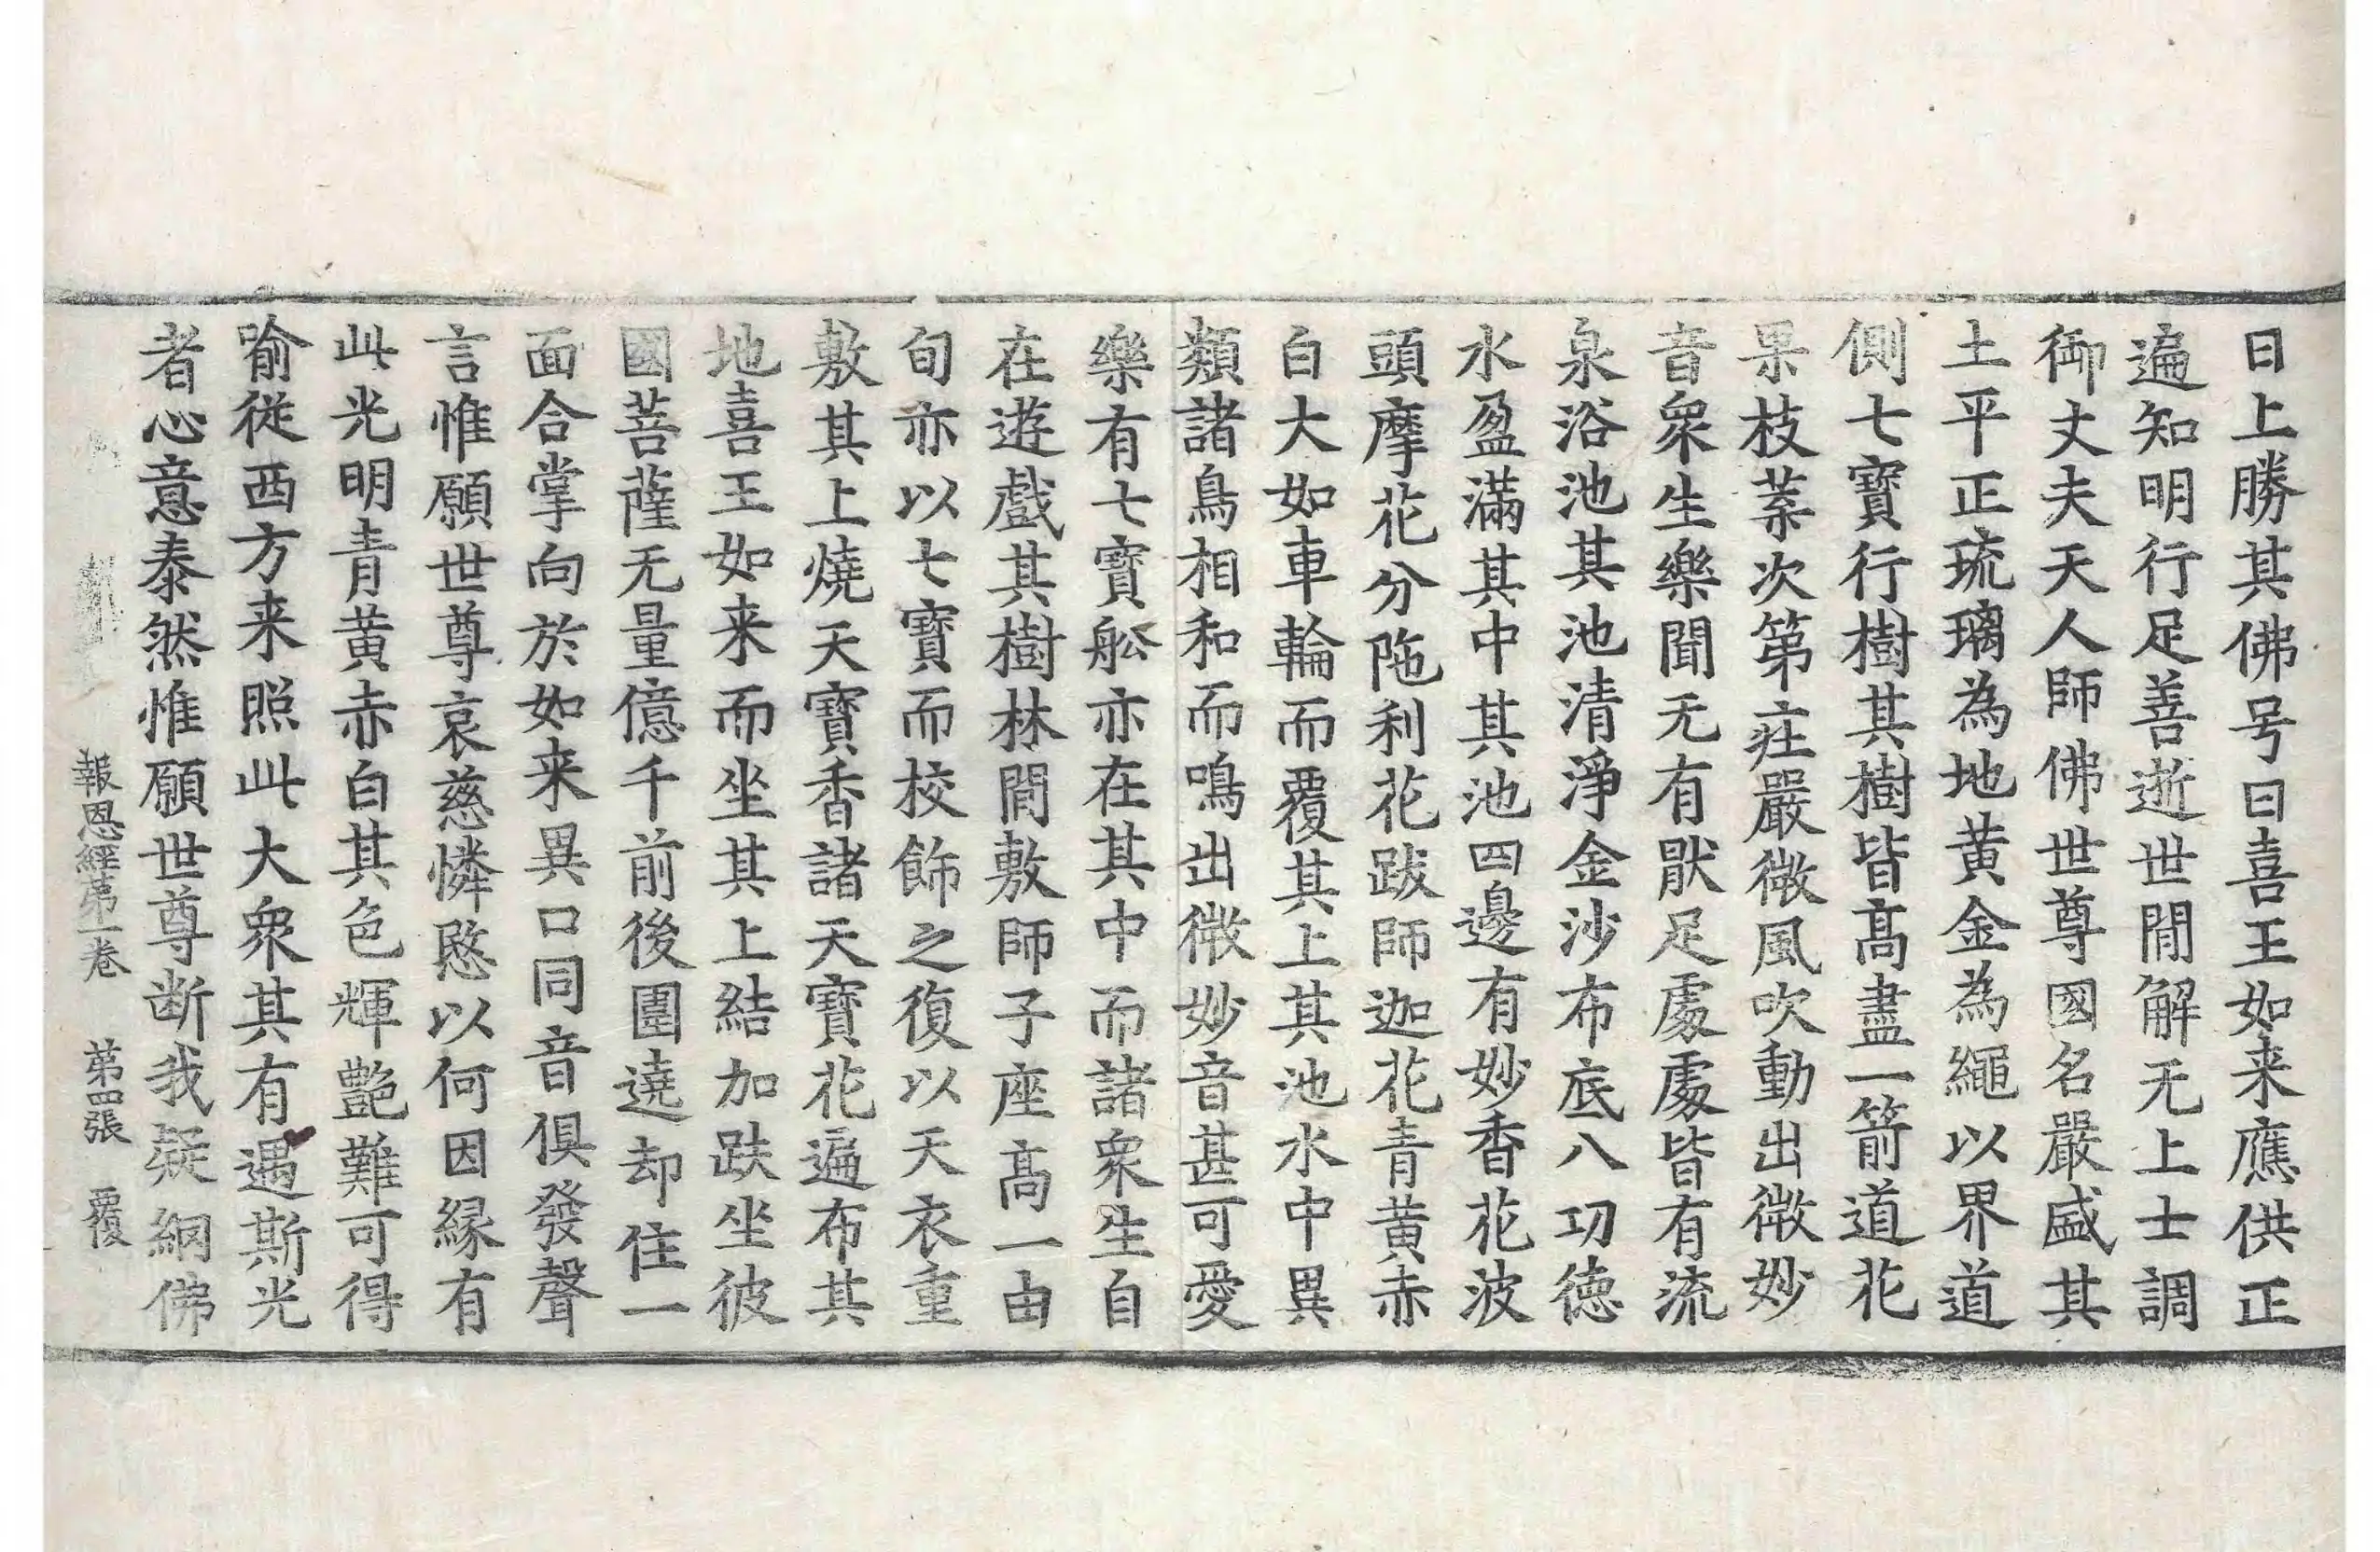 曰上勝其佛号曰喜王如来應供正
遍知明行足善逝世間解无上士調
御丈夫天人師佛世尊國名嚴盛其
土平正琉璃為地黄金為繩以界道
側七寶行樹其樹皆髙盡一箭道花
果枝葉次第莊嚴微風吹動出微妙
音衆生樂聞无有猒足處處皆有流
泉浴池其池清淨金沙布底八功徳
水盈滿其中其池四邊有妙香花波
頭摩花分陁利花跋師迦花青黄赤
白大如車輪而覆其上其池水中異
類諸鳥相和而鳴出微妙音甚可愛
樂有七寶舩亦在其中而諸衆生自
在遊戲其樹林間敷師子座髙一由
旬亦以七寶而校飾之復以天衣重
敷其上燒天寶香諸天寶花遍布其
地喜王如来而坐其上結加趺坐彼
國菩薩无量億千前後圍遶却住一
面合掌向於如来異口同音俱發聲
言惟願世尊哀慈憐愍以何因縁有
此光明青黄赤白其色輝艶難可得
喻従西方来照此大衆其有遇斯光
者心意泰然惟願世尊断我疑網佛
報恩經第一卷 第四張 覆